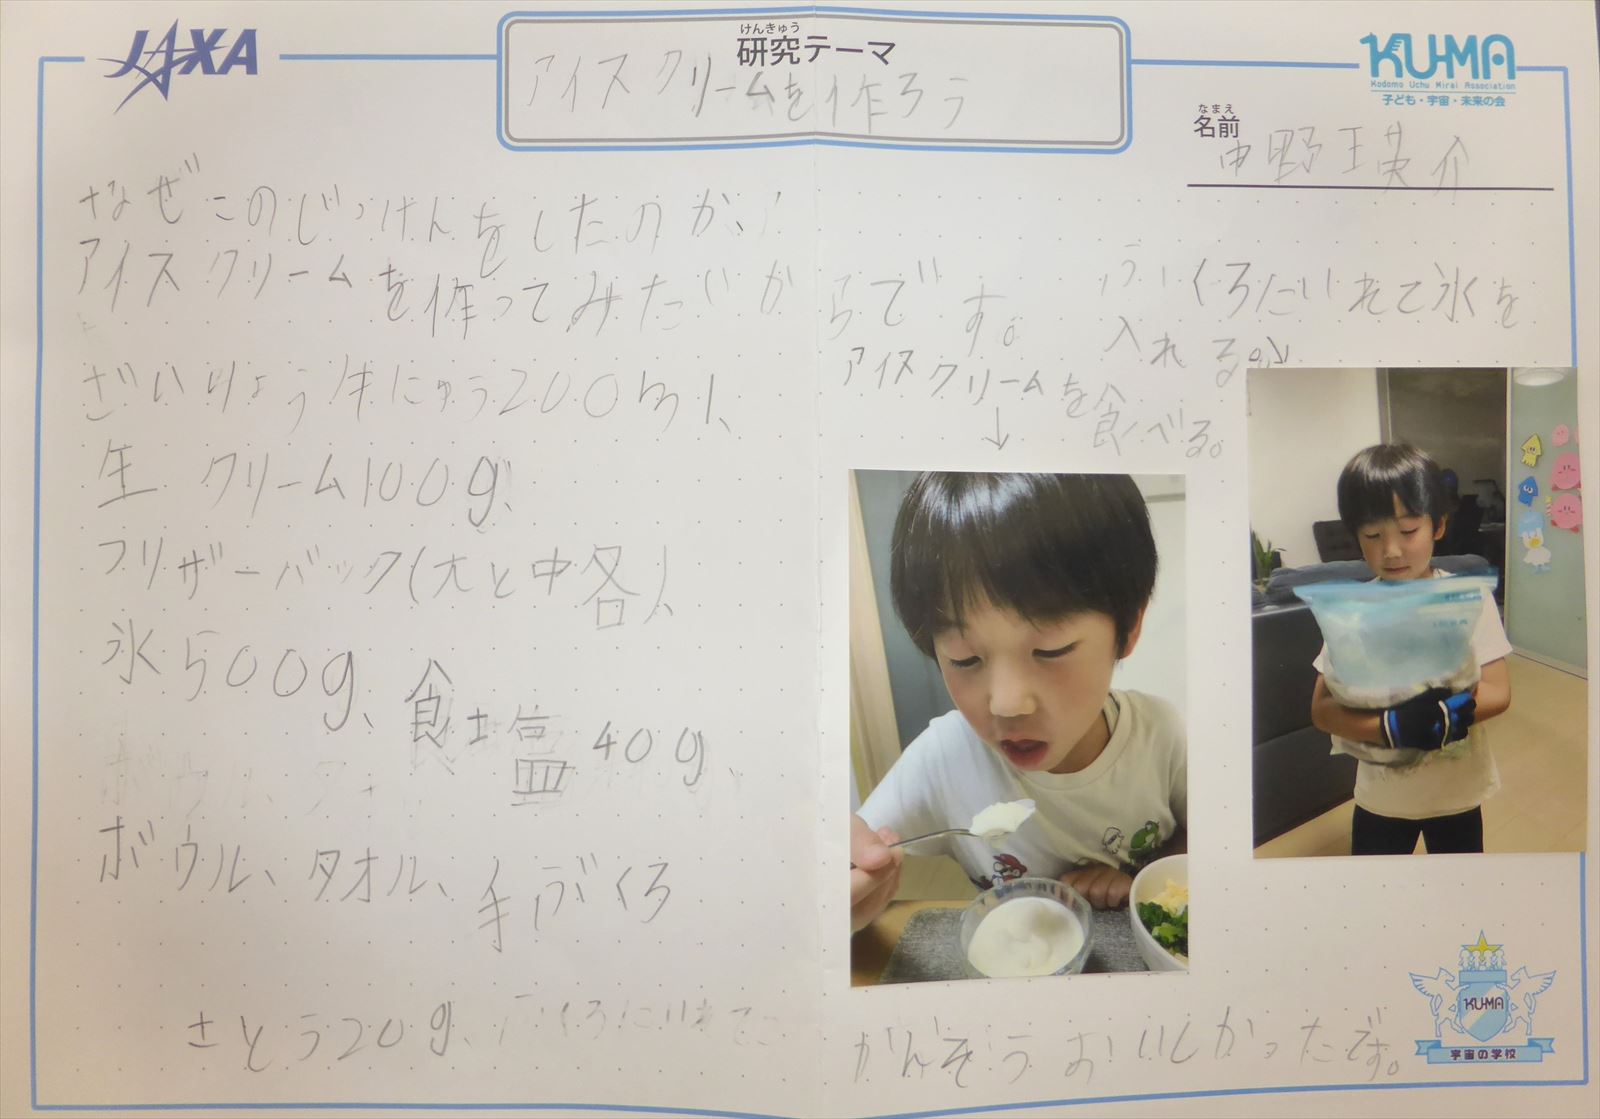 JAXA
けんきゅう
研究テーマ
アイスクリームを作ろう
KU-MA
Kodomo Uchu Mirai Association
子ども・宇宙・未来の会
なまえ
名前
中野瑛介
なぜこのじっけんをしたのか、
アイスクリームを作ってみたいからです。
ざいりょう牛にゅう200ml、
生クリーム100g、
フリザーバック(大と中各1
氷500g、食塩40g、
ボウル、タオル、手ぶくろ
さとう20g、
ふくろにいれて氷を
入れる。↓
アイスクリームを食べる。
↓
かんそうおいしかったです。
KU-MA
宇宙の学校